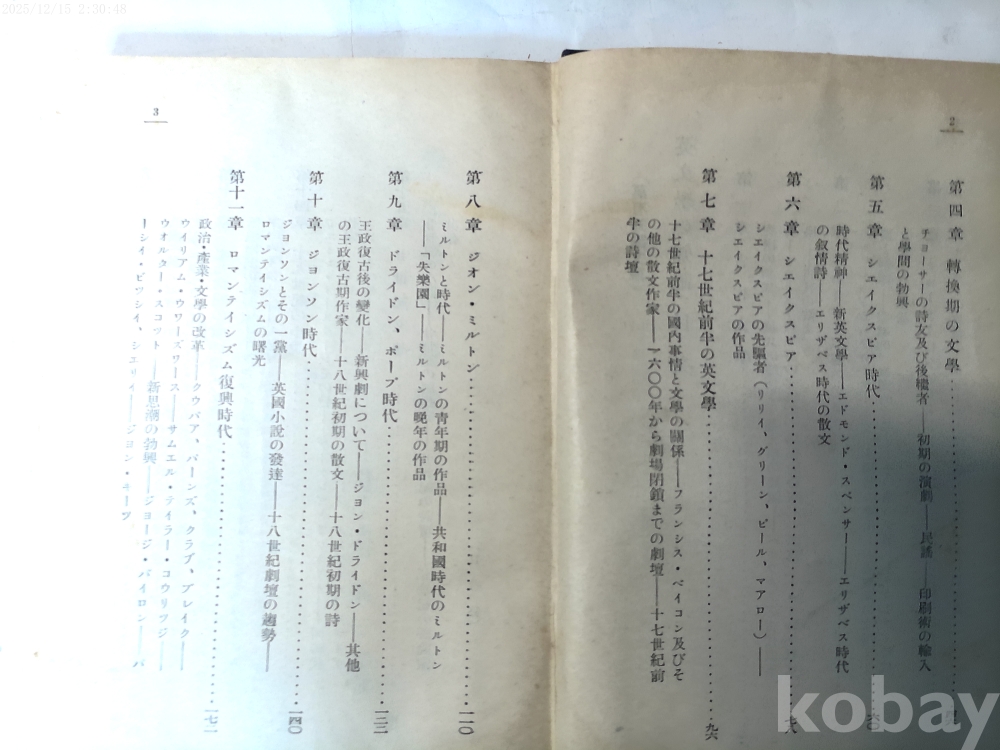 2025/12/15 2:30:48
2
第四章 轉換期の文學
チョーサーの詩友及び後繼者——初期の演劇——民謠——印刷術の輸入
と學問の勃興
第五章 シェイクスピア時代 六〇
時代精神——新英文學——エドモンド・スペンサー——エリザベス時代
の叙情詩——エリザベス時代の散文
第六章 シェイクスピア
シェイクスピアの先驅者(リリイ、グリーン、ピール、マアロー)——
シェイクスピアの作品
第七章 十七世紀前半の英文學 九六
十七世紀前半の國內事情と文學の關係——フランシス・ベイコン及びそ
の他の散文作家——一六〇〇年から劇場閉鎖までの劇壇——十七世紀前
半の詩壇
3
第八章 ジオン・ミルトン 一一〇
ミルトンと時代——ミルトンの青年期の作品——共和國時代のミルトン
——「失樂園」——ミルトンの晩年の作品
第九章 ドライドン、ポープ時代 一二二
王政復古後の變化——新興劇について——ジョン・ドライドン——其他
の王政復古期作家——十八世紀初期の散文——十八世紀初期の詩
第十章 ジョンソン時代 一四〇
ジョンソンとその一黨——英國小說の發達——十八世紀劇壇の趨勢——
ロマンテイシズムの曙光
第十一章 ロマンテイシズム復興時代 一七一
政治・產業・文學の改革——クウパア、バーンズ、クラブ、ブレイク——
ウイリアム・ウワーズワース——サムエル・テイラー・コウリツジ——
ウオルター・スコット——新思潮の勃興——ジョージ・バイロン——パ
ーシイ・ビツシイ、シエリイ——ジョン・キーツ
kobay